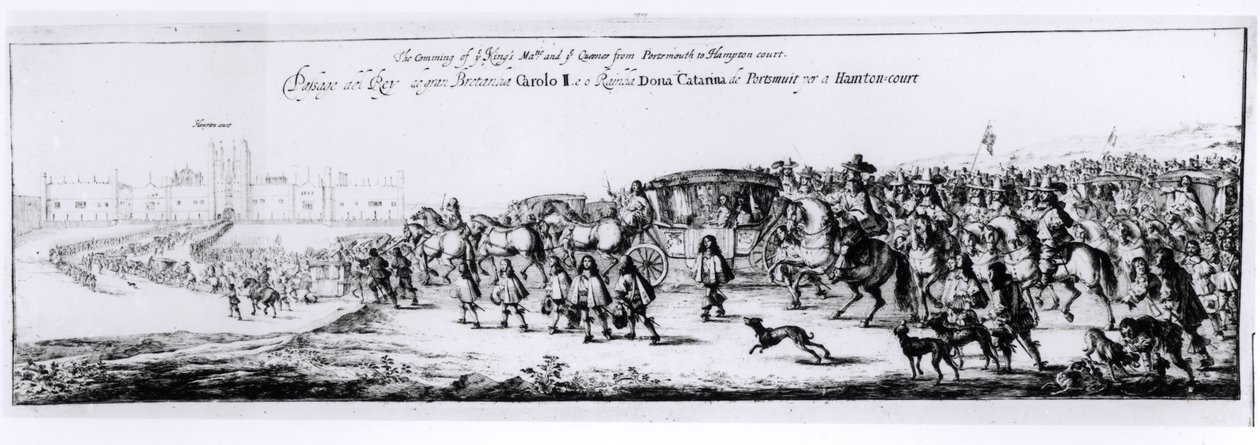 The Comming of yͤ King's Maᵗⁱᵉ and yͤ Queenes from Portsmouth to Hampton court.
Passage del Rey de gran Bretannia Carolo II. e o Rainha Dona Catarina de Portsmuit per a Hamton=court
Hampton court